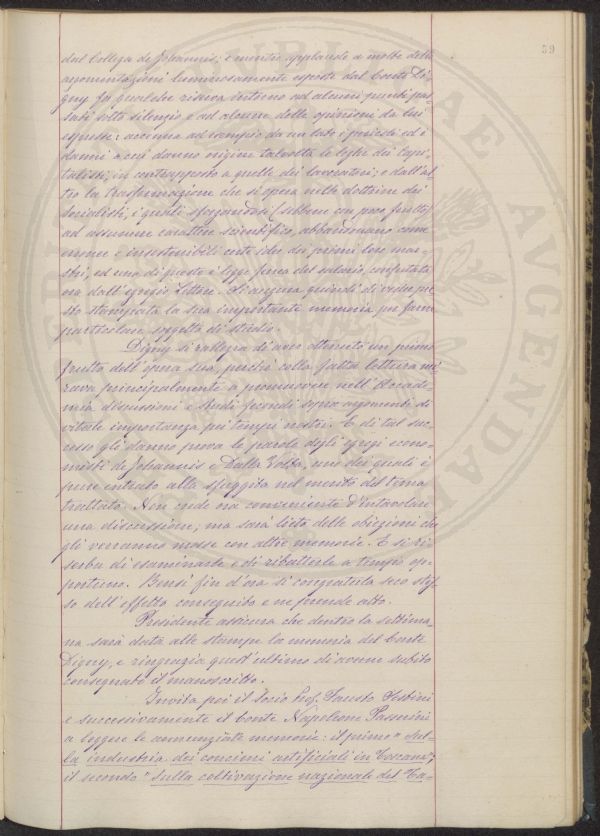 39
dal Collega de Johannis; e mentre applaude a molte delle
argomentazioni luminosamente esposte dal Conte Di-
gny fa qualche riserva intorno ad alcuni punti pas-
sati sotto silenzio e ad alcune delle opinioni da lui
espresse: accenna ad esempio da un lato i pericoli ed i
danni a cui danno origine talvolta le leghe dei Capi-
talisti, in contrapposto a quelle dei lavoratori; e dall'al-
tro la trasformazione che si opera nelle dottrine dei
socialisti, i quali sforzandosi (sebbene con poco frutto)
ad assumere carattere scientifico, abbandonano come
erronee e insostenibili certe idee dei primi loro mae-
stri, ed una di queste è legge ferrea del salario, confutata
ora dall'egregio lettore. Si augura quindi di veder pre-
sto stampata la sua importante memoria per farne
particolare soggetto di studio.
Digny si rallegra di aver ottenuto un primo
frutto dell'opera sua, perchè colla fatta lettura mi-
rava principalmente a promuovere nell'Accade-
mia discussioni e studi fecondi sopra argomenti di
vitale importanza pei tempi nostri. E di tal suc-
cesso gli danno prova le parole degli egregi econo-
misti de Johannis e Dalla Volta, uno dei quali è
pure entrato alla sfuggita nel merito del tema
trattato. Non crede ora conveniente d'intavolare
una discussione, ma sarà lieto delle obiezioni che
gli verranno mosse con altre memorie. E si ri-
serba di esaminarle e di ribatterle a tempo op-
portuno. Bensì fin d'ora si congratula seco stes-
so dell'effetto conseguito e ne prende atto.
Presidente assicura che dentro la settima-
na sarà data alle stampe la memoria del Conte
Digny, e ringrazia quest'ultimo di averne subito
consegnato il manoscritto.
Invita poi il Socio Prof. Fausto Sestini
e successivamente il Conte Napoleone Passerini
a leggere le annunziate memorie: il primo "Sul-
la industria dei concimi artificiali in Toscana",
il secondo "Sulla coltivazione nazionale del Ta-